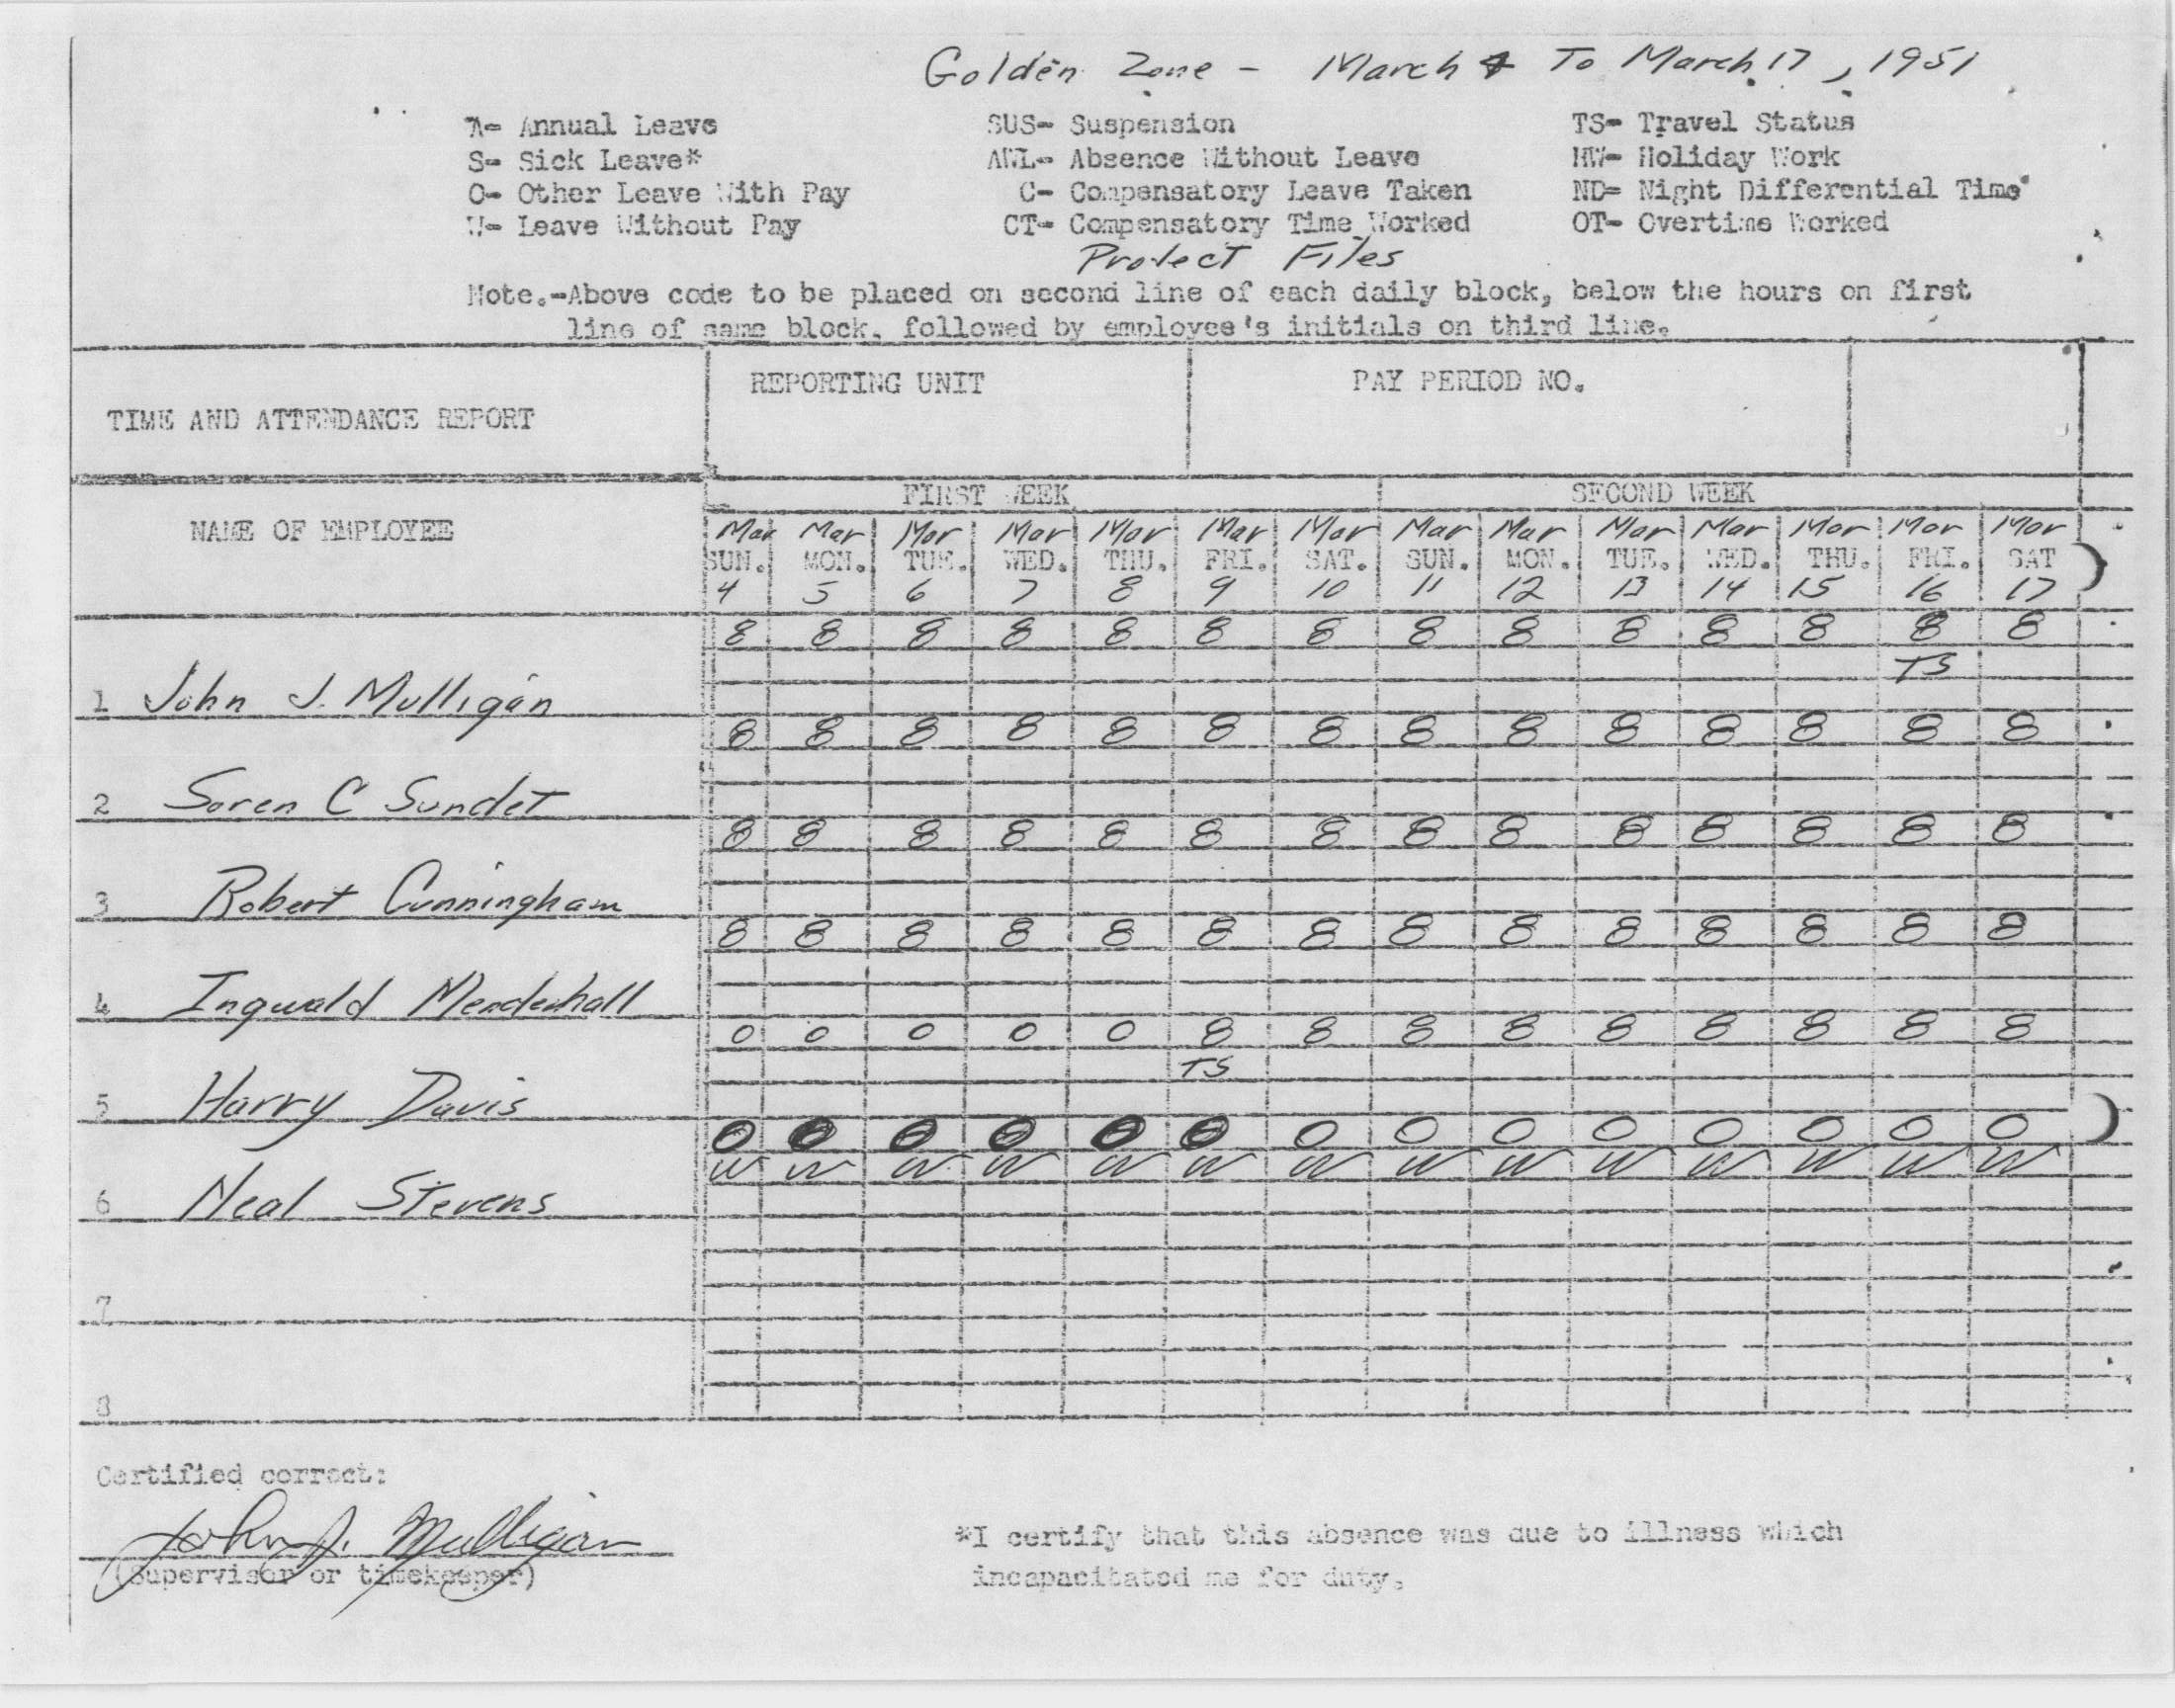 Golden Zone - March 4 To March 17, 1951
A- Annual Leave SUS- Suspension TS- Travel Status
S- Sick Leave* AWL- Absence Without Leave HW- Holiday Work
O- Other Leave With Pay C- Compensatory Leave Taken ND- Night Differential Time
W- Leave Without Pay CT- Compensatory Time Worked OT- Overtime Worked
Project Files
Note.-Above code to be placed on second line of each daily block, below the hours on first
line of same block, followed by employee's initials on third line.
REPORTING UNIT PAY PERIOD NO.
TIME AND ATTENDANCE REPORT
FIRST WEEK SECOND WEEK
NAME OF EMPLOYEE
Mar Mar Mar Mar Mar Mar Mar Mar Mar Mar Mar Mar Mar Mar
SUN. MON. TUE. WED. THU. FRI. SAT. SUN. MON. TUE. WED. THU. FRI. SAT
4 5 6 7 8 9 10 11 12 13 14 15 16 17
8 8 8 8 8 8 8 8 8 8 8 8 8 8
TS
1 John J. Mulligan
8 8 8 8 8 8 8 8 8 8 8 8 8 8
2 Soren C Sundet
8 8 8 8 8 8 8 8 8 8 8 8 8 8
3 Robert Cunningham
8 8 8 8 8 8 8 8 8 8 8 8 8 8
4 Ingwald Mendenhall
0 0 0 0 0 8 8 8 8 8 8 8 8 8
TS
5 Harry Davis
0 0 0 0 0 0 0 0 0 0 0 0 0 0
W W W W W W W W W W W W W W
6 Neal Stevens
7
8
Certified correct:
John J. Mulligan
(Supervisor or timekeeper)
*I certify that this absence was due to illness which
incapacitated me for duty.